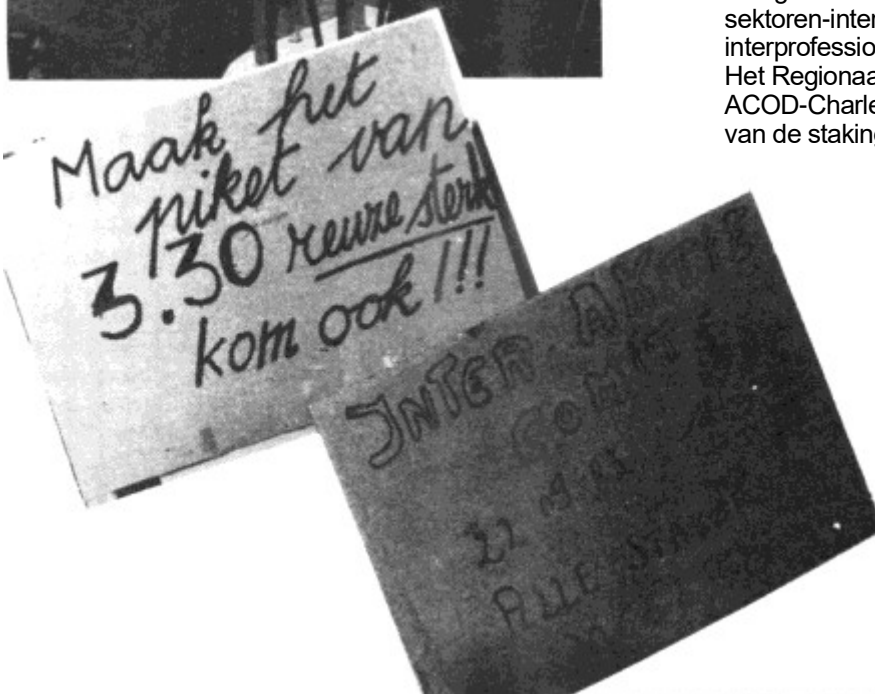 sektoren-inter
interprofessio
Het Regionaa
ACOD-Charle
van de staking
Maak het
piket van
3.30 reuze sterk
kom ook !!!
INTER-AKTIE
COMIT
22
ALLE